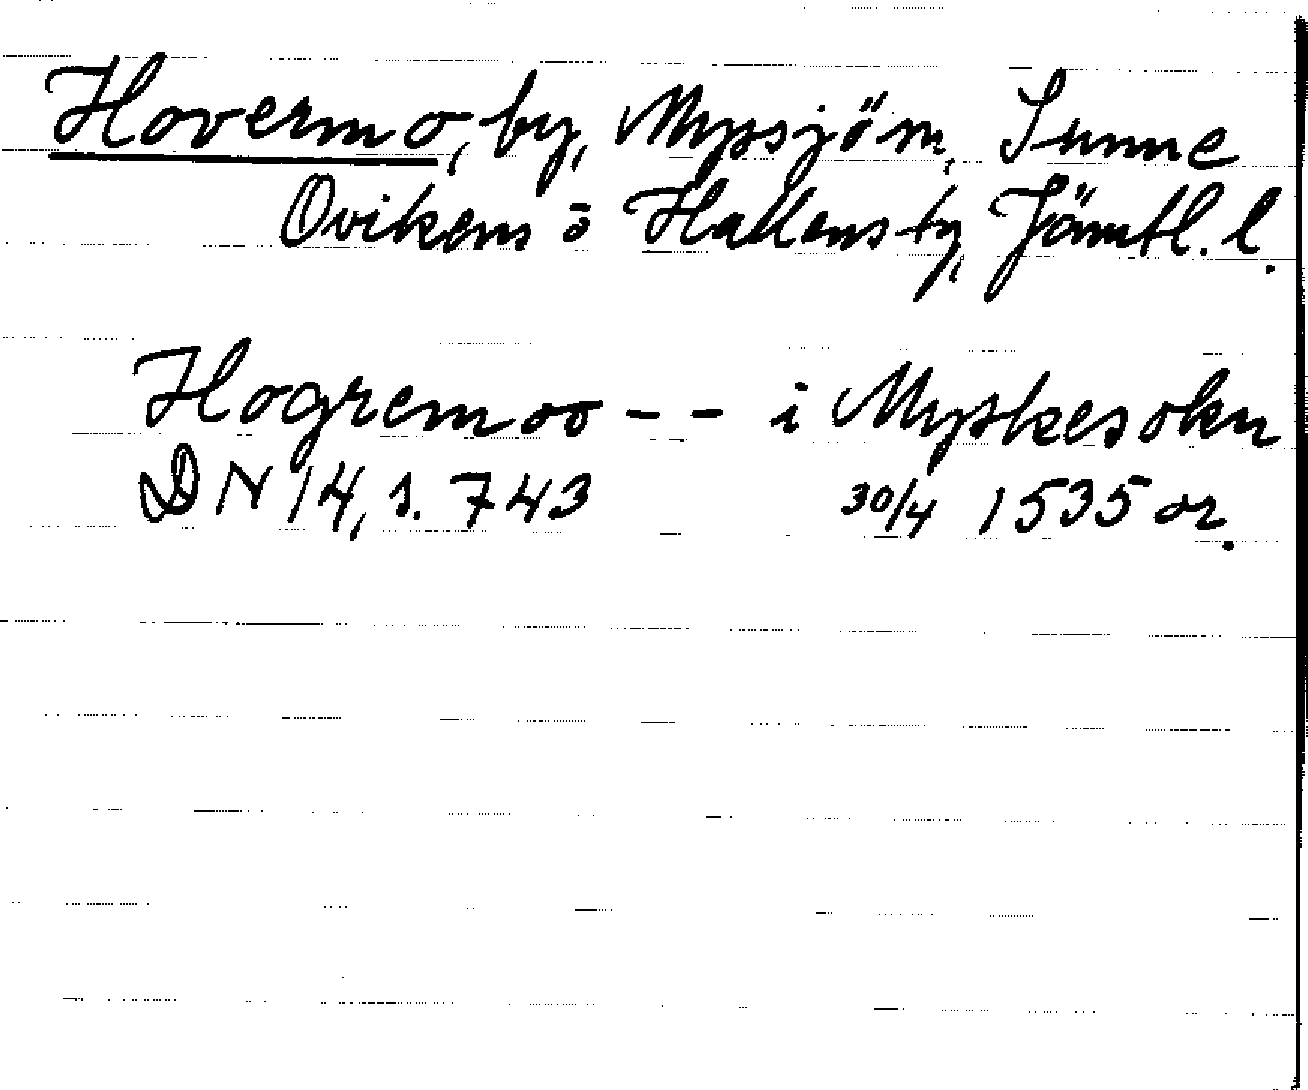 Hovermo, by, Myssjö sn, Sunne
Ovikens o Hallens tg, Jämtl. l.
Hogremoo -- i Myskesokn
DN 14, s. 743 30/4 1535 or.